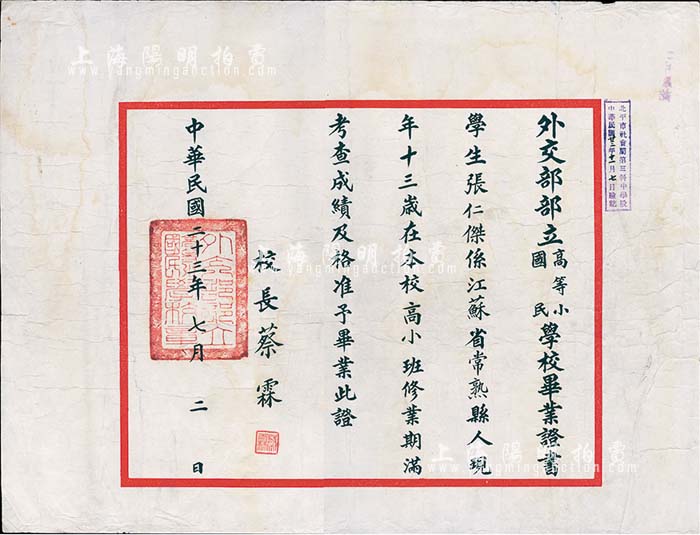 外交部部立高等小國民學校畢業證書
學生張仁傑係江蘇省常熟縣人現
年十三歲在本校高小班修業期滿
考查成績及格准予畢業此證
校長蔡霖
中華民國二十三年七月二日
北平市社會局第三科中學股
中華民國廿三年十一月七日驗訖
上海陽明拍賣
www.yangmingauction.com
上海陽明拍賣
www.yangmingauction.com
上海陽明拍賣
www.yangmingauction.com